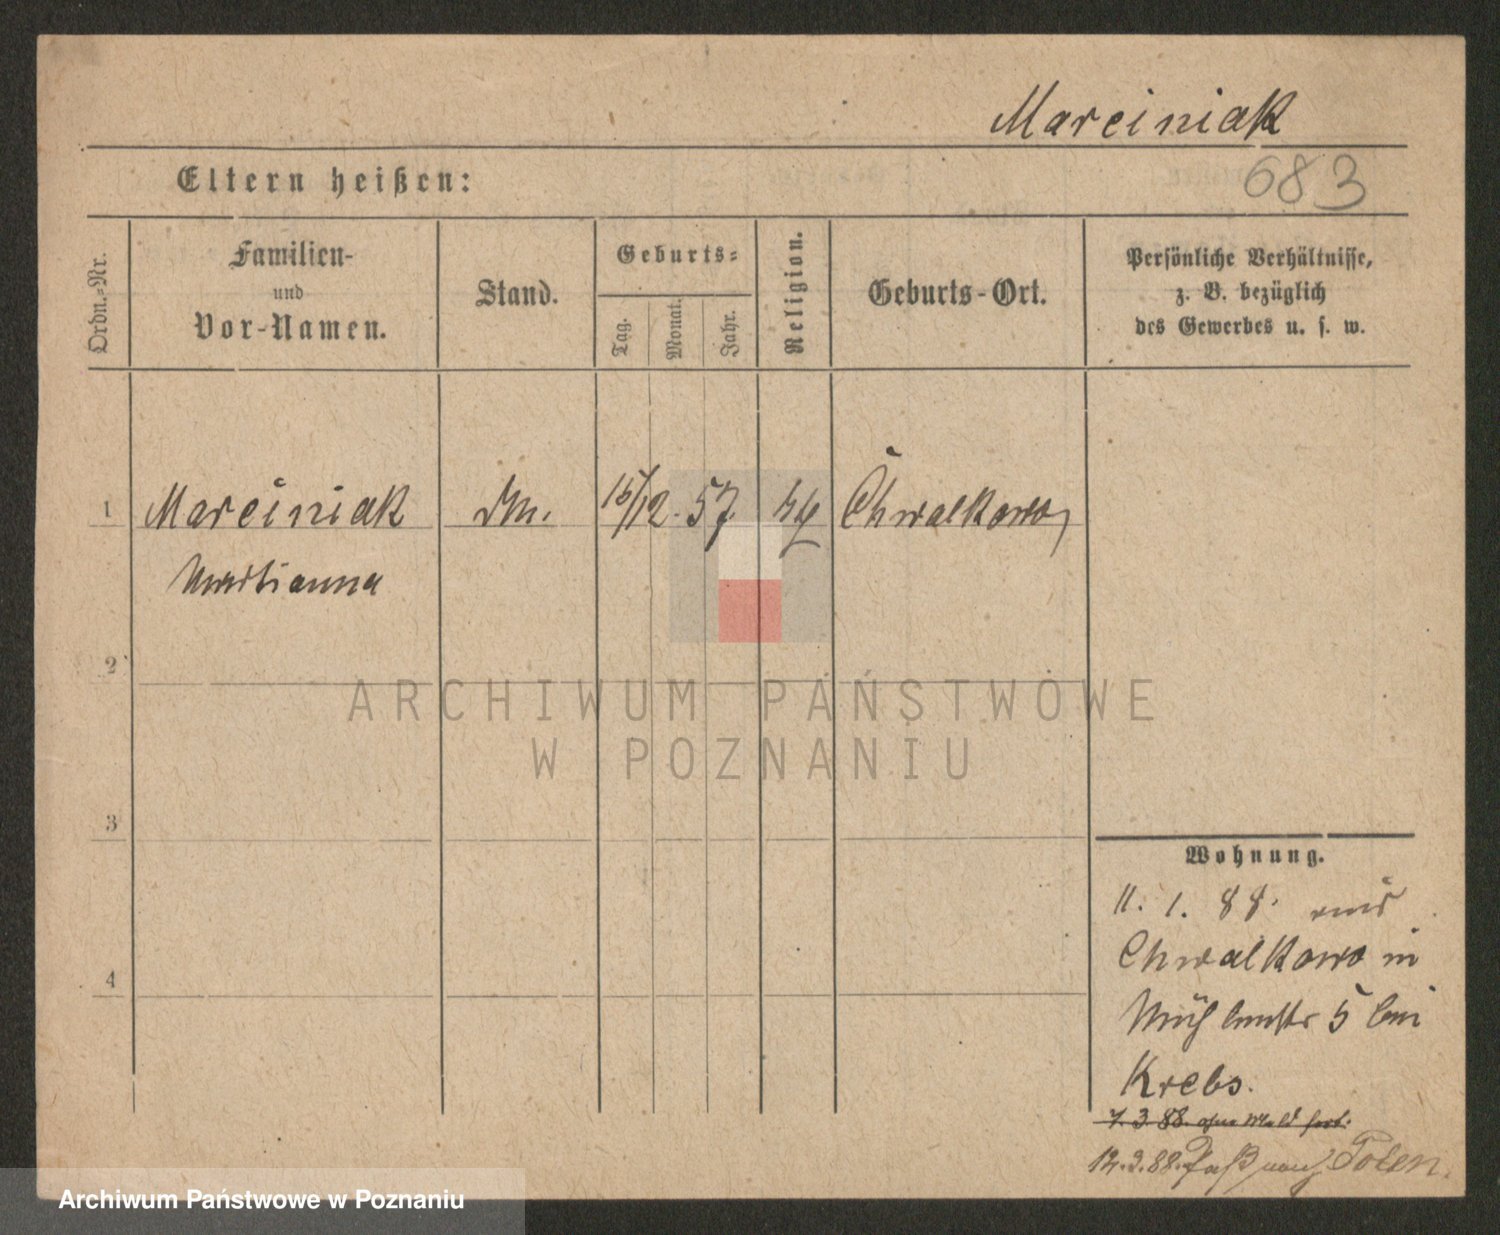 Marciniak
Eltern heißen:
683
Ordn.-Nr.
Familien-
und
Vor-Namen.
Stand.
Geburts-
Tag.
Monat.
Jahr.
Religion.
Geburts-Ort.
Persönliche Verhältnisse,
z. B. bezüglich
des Gewerbes u. s. w.
1
Marciniak
15/12. 57.
Chwalkowo
Marianna
2
3
4
Wohnung.
11. 1. 88. aus
Chwalkowo in
Mühlenstr 5 bei
Krebs.
7. 3. 88. ohne Meld fort.
12. 3. 88. Paß nach Polen.
ARCHIWUM PAŃSTWOWE
W POZNANIU
Archiwum Państwowe w Poznaniu